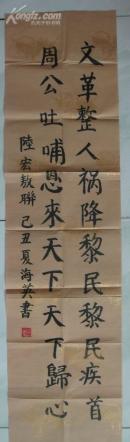 文革整人祸降黎民黎民疾首
周公吐哺恩來天下天下歸心
陸宏敖聯 己丑夏海英書